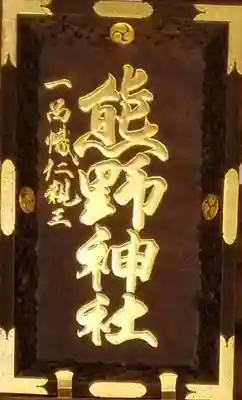 熊野神社
一品幟仁親王